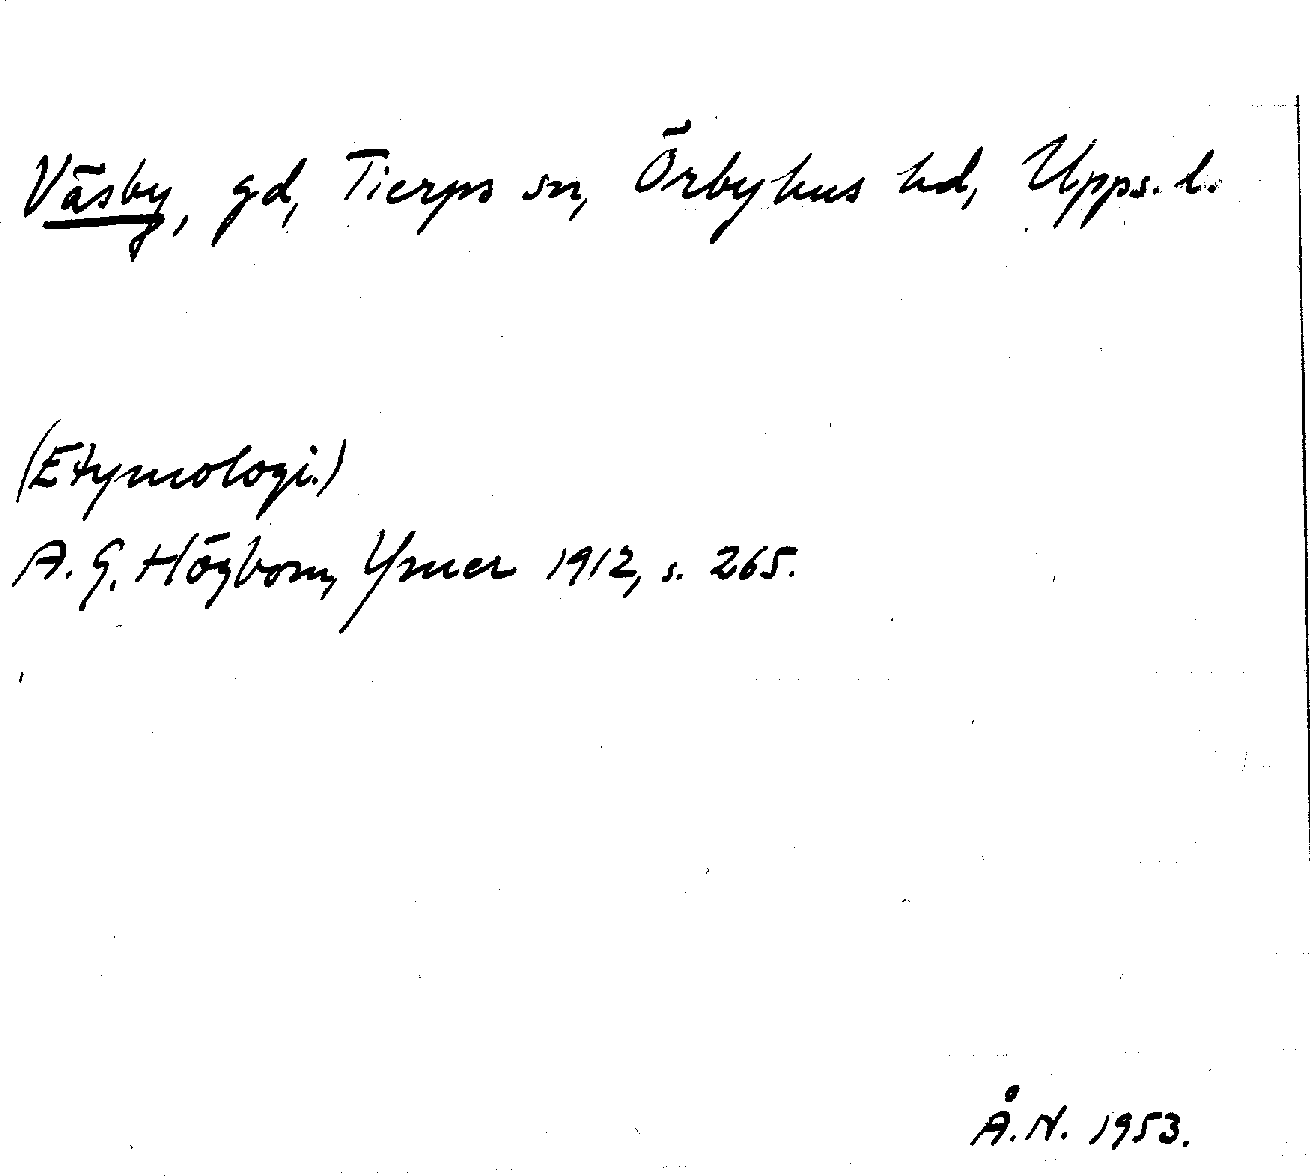 Väsby, gd, Tierps sn, Örbyhus hd, Upps. l.
(Etymologi.)
A. G. Högbom, Ymer 1912, s. 265.
Å. N. 1953.